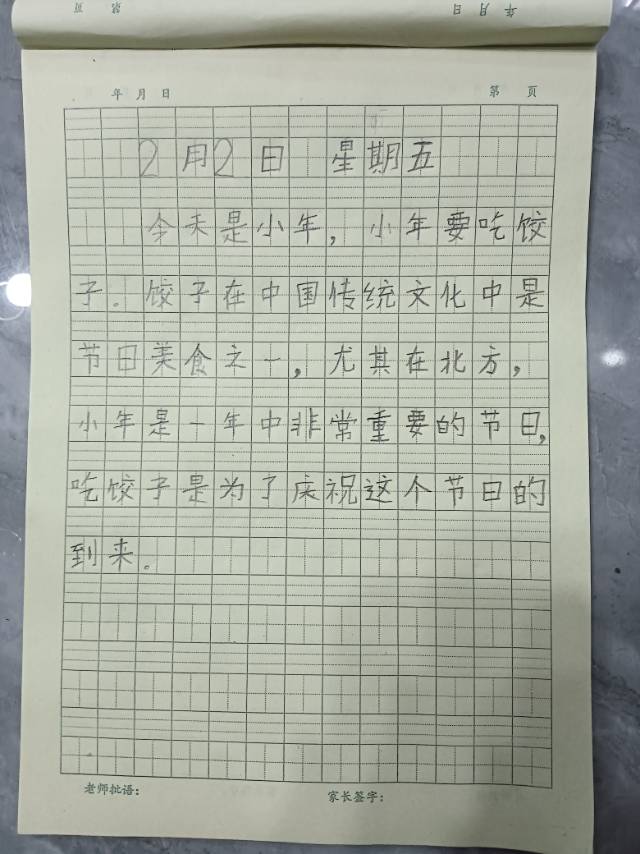 页 第 日 月 年
年 月 日 第 页
2月2日 星期五
今天是小年，小年要吃饺
子。饺子在中国传统文化中是
节日美食之一，尤其在北方，
小年是一年中非常重要的节日，
吃饺子是为了庆祝这个节日的
到来。
老师批语： 家长签字：